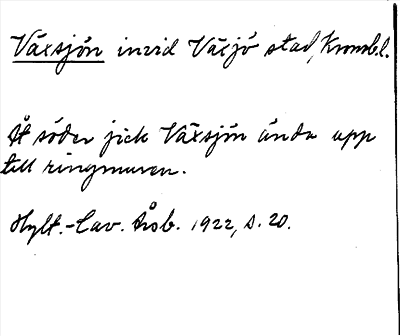 Växsjön invid Växjö stad, Kronob.l.
Åt söder gick Växsjön ända upp
till ringmuren.
Hylt.-Cav. Årsb. 1922, s. 20.